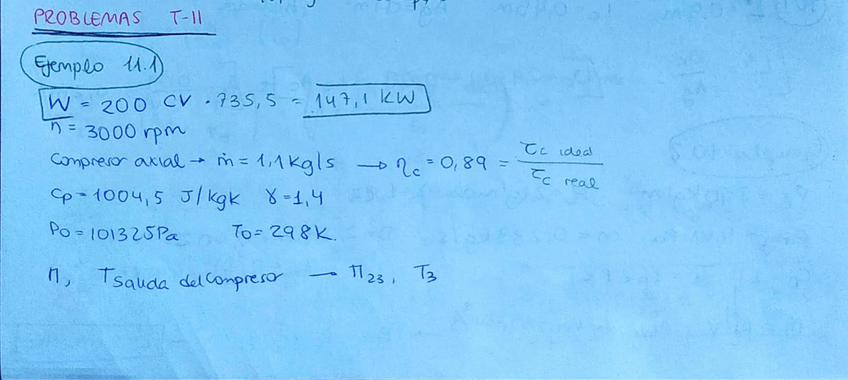 PROBLEMAS T-11
Ejemplo 11.1
W = 200 CV · 735,5 = 147,1 KW
n = 3000 rpm
Compresor axial → ṁ = 1,1 kg/s → ηc = 0,89 = τc ideal / τc real
Cp = 1004,5 J/kgK γ = 1,4
P0 = 101325Pa T0 = 298K.
Π, Tsalida del compresor → Π23, T3